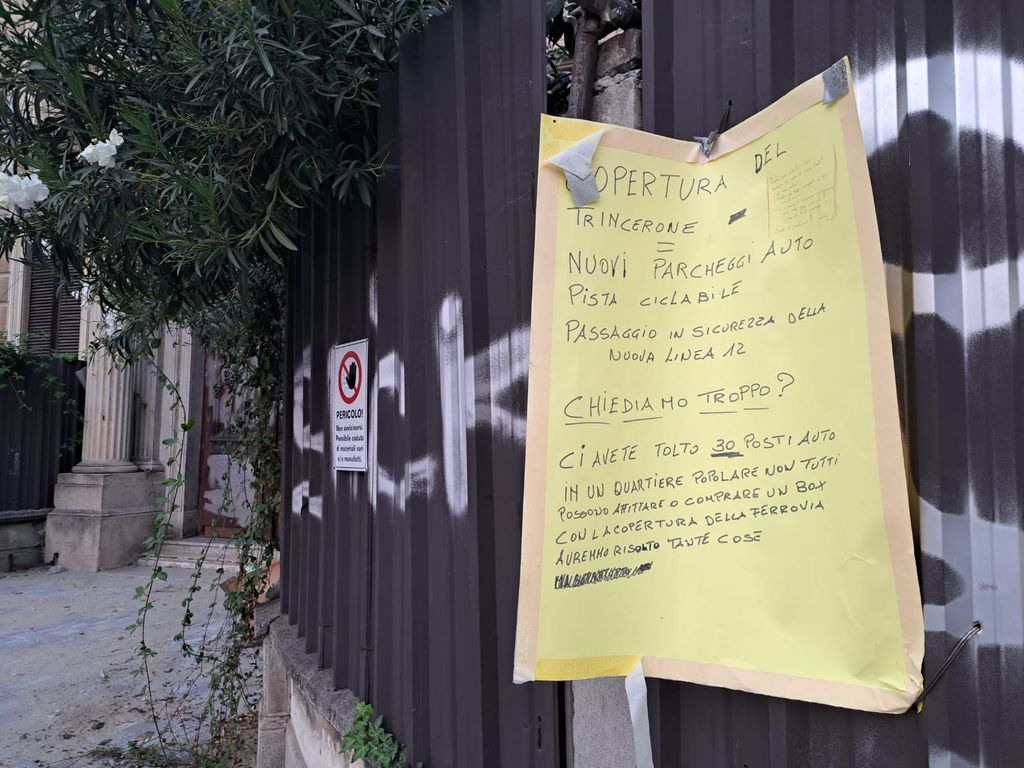 COPERTURA DEL
TRINCERONE
=
NUOVI PARCHEGGI AUTO
PISTA CICLABILE
PASSAGGIO IN SICUREZZA DELLA
NUOVA LINEA 12
CHIEDIAMO TROPPO?
CI AVETE TOLTO 30 POSTI AUTO
IN UN QUARTIERE POPOLARE NON TUTTI
POSSONO AFFITTARE O COMPRARE UN BOX
CON LA COPERTURA DELLA FERROVIA
AVREMMO RISOLTO TANTE COSE
PERICOLO!
Non avvicinarsi.
Possibile caduta
di materiali vari
e/o manufatti.